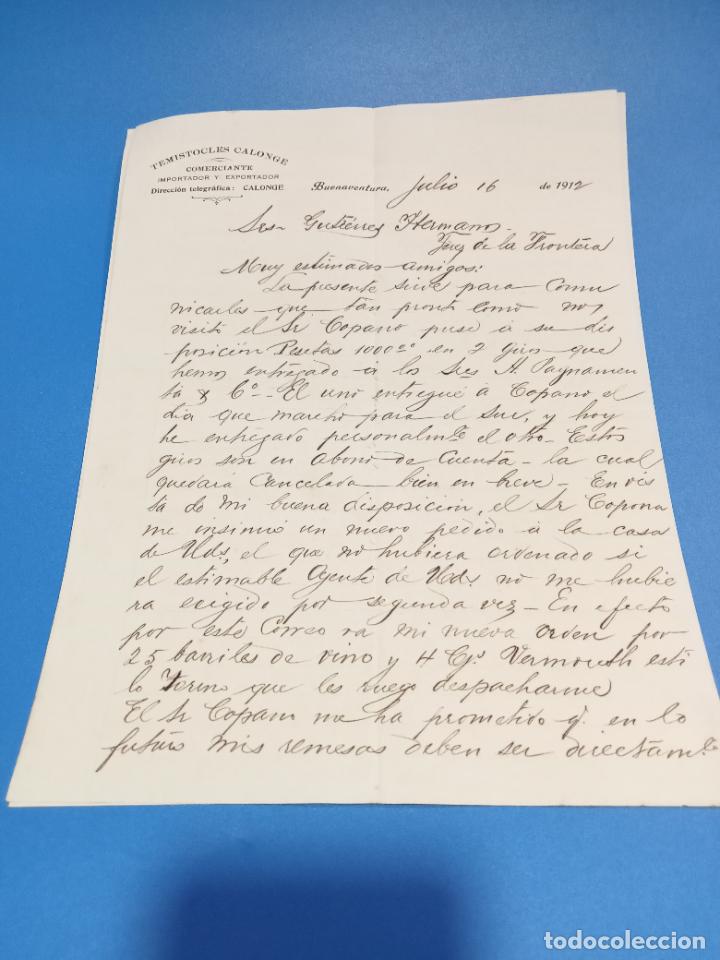 TEMISTOCLES CALONGE
COMERCIANTE
IMPORTADOR Y EXPORTADOR
Dirección telegráfica: CALONGE
Buenaventura, Julio 16 de 1912
Sres Gutiérrez Hermanos.
Jerez de la Frontera
Muy estimados amigos:
La presente sirve para comu
nicarles que tan pronto como nos
visitó el Sr Copano puse á su dis
posición Pesetas 1000.00 en 2 giros que
hemos entregado á los Sres A. Paynamen
tá & Co. - El uno entregué a Copano el
día que marchó para el Sur, y hoy
he entregado personalmte el otro. Estos
giros son en abono de cuenta - la cual
quedará cancelada bien en breve - En vis
ta de mi buena disposición, el Sr Copano
me insinuó un nuevo pedido á la casa
de Uds, el que no hubiera ordenado si
el estimable Agente de Uds no me hubie
ra exigido por segunda vez - En efecto
por este Correo va mi nueva orden por
25 barriles de vino y 4 Cjs Vermouth esti
lo Torino que les ruego despacharme
El Sr Copano me ha prometido q. en lo
futuro mis remesas deben ser directamte
todocoleccion
todocoleccion.net